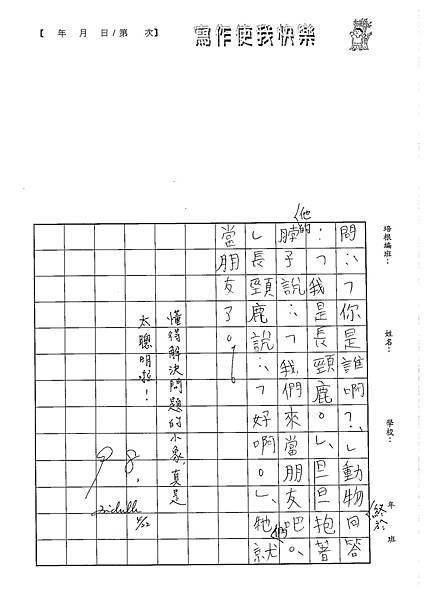 【 年 月 日/第 次】
寫作使我快樂
培根編班：
姓名：
學校：
年 班
問：「你是誰啊？」動物回答
終於
：「我是長頸鹿。」旦旦抱著
他的
脖子說：「我們來當朋友吧。
」長頸鹿說：「好啊。」牠就
們
當朋友了。
懂得解決問題的小象，真是
太聰明啦！
98.
4/22